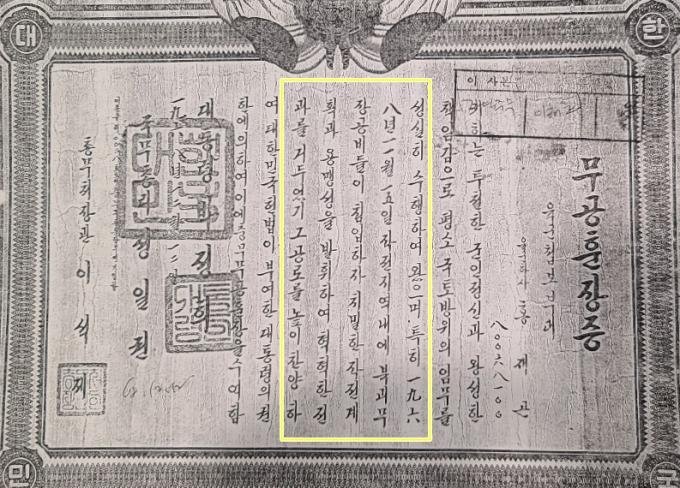 대
한
민
국
이 사본
무공훈장증
육군첩보부대
육군하사 홍 재 근
八00六八一00
귀하는 투철한 군인정신과 왕성한
책임감으로 평소 국토방위의 임무를
성실히 수행하여 왔으며 특히 一九六
八년 一一월 一五일 작전지역내에 북괴무
장공비들이 침입하자 치밀한 작전계
획과 용맹성을 발휘하여 혁혁한 전
과를 거두었기 그 공로를 높이 찬양하
여 대한민국헌법이 부여한 대통령의 권
한에 의하여 이에 충무무공훈장을 수여함
대통령 박 정 희
국무총리 정 일 권
총무처장관 이 석 제